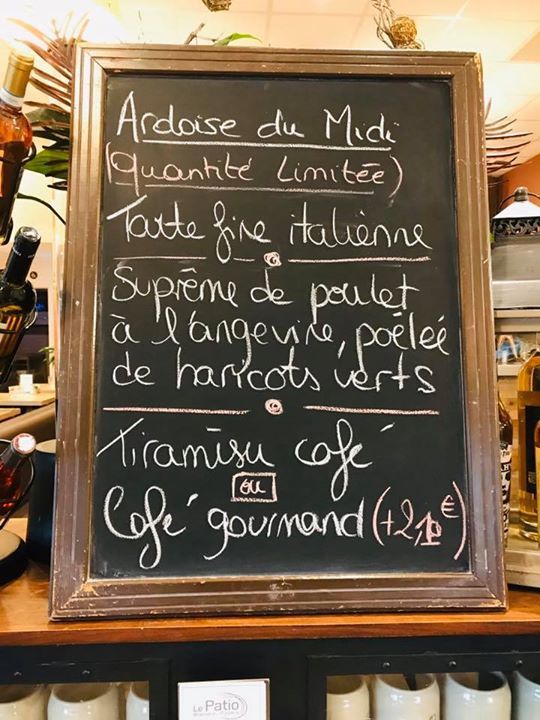 Ardoise du Midi
(Quantité Limitée)
Tarte fine italienne
Suprême de poulet
à l'angevine, poêlée
de haricots verts
Tiramisu café
ou
Café gourmand (+2,10€)
Le Patio